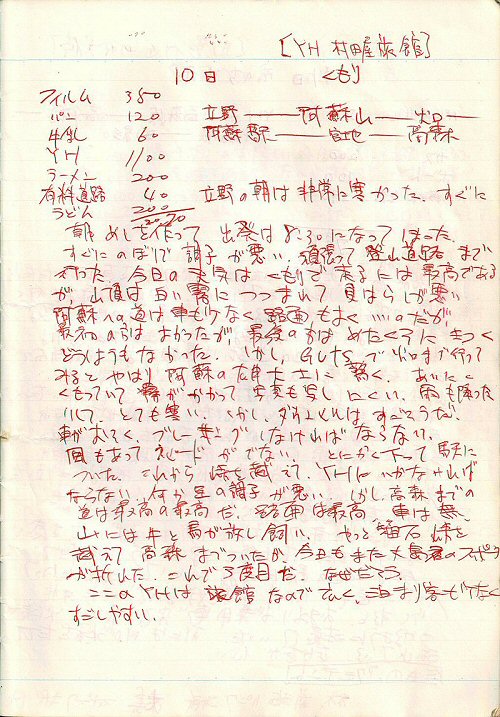 [YH 村田屋旅館]
10日 くもり
フィルム 350
パン 120 立野 ― 阿蘇山 ― 火口 ―
牛乳 60 阿蘇駅 ― 宮地 ― 高森
YH 1100
ラーメン 200
有料道路 40 立野の朝は非常に寒かった。すぐに
うどん 200
2070
朝めしを作って出発は8:30になってしまった。
すぐにのぼりで調子が悪い。頑張って登山道路まで
今日の天気はくもりで、まるには最高である
が、山頂は白い霧につつまれて見はらしが悪い
阿蘇への道は車も少なく路面もよくいいのだが、
最初の方はよかったが、最後の方はめたくそにきつく
どうしようもなかった。しかし、GUTSで火口まで行って
みるとやはり阿蘇の雄大さに驚く。あいにく
くもっていて霧がかかって写真も写しにくい。雨も降った
りして、とても寒い。しかし、ダウンヒルはすごそうだ。
車がおそく、ブレーキングしなければならない。
風もあってスピードがでない。とにかく下って駅に
ついた。これから峠を越えて、YHにいかなければ
ならない。何か足の調子が悪い。しかし高森までの
道は最高の最高だ。路面は最高、車は無、
山には牛と馬が放し飼い。やっと箱石峠を
越えて高森までついたが、今日もまた 君のスポーク
が折れた。これで3度目だ。なぜだろう。
ここのYHは旅館なのでてんく、泊まり客も少なく
すごしやすい。